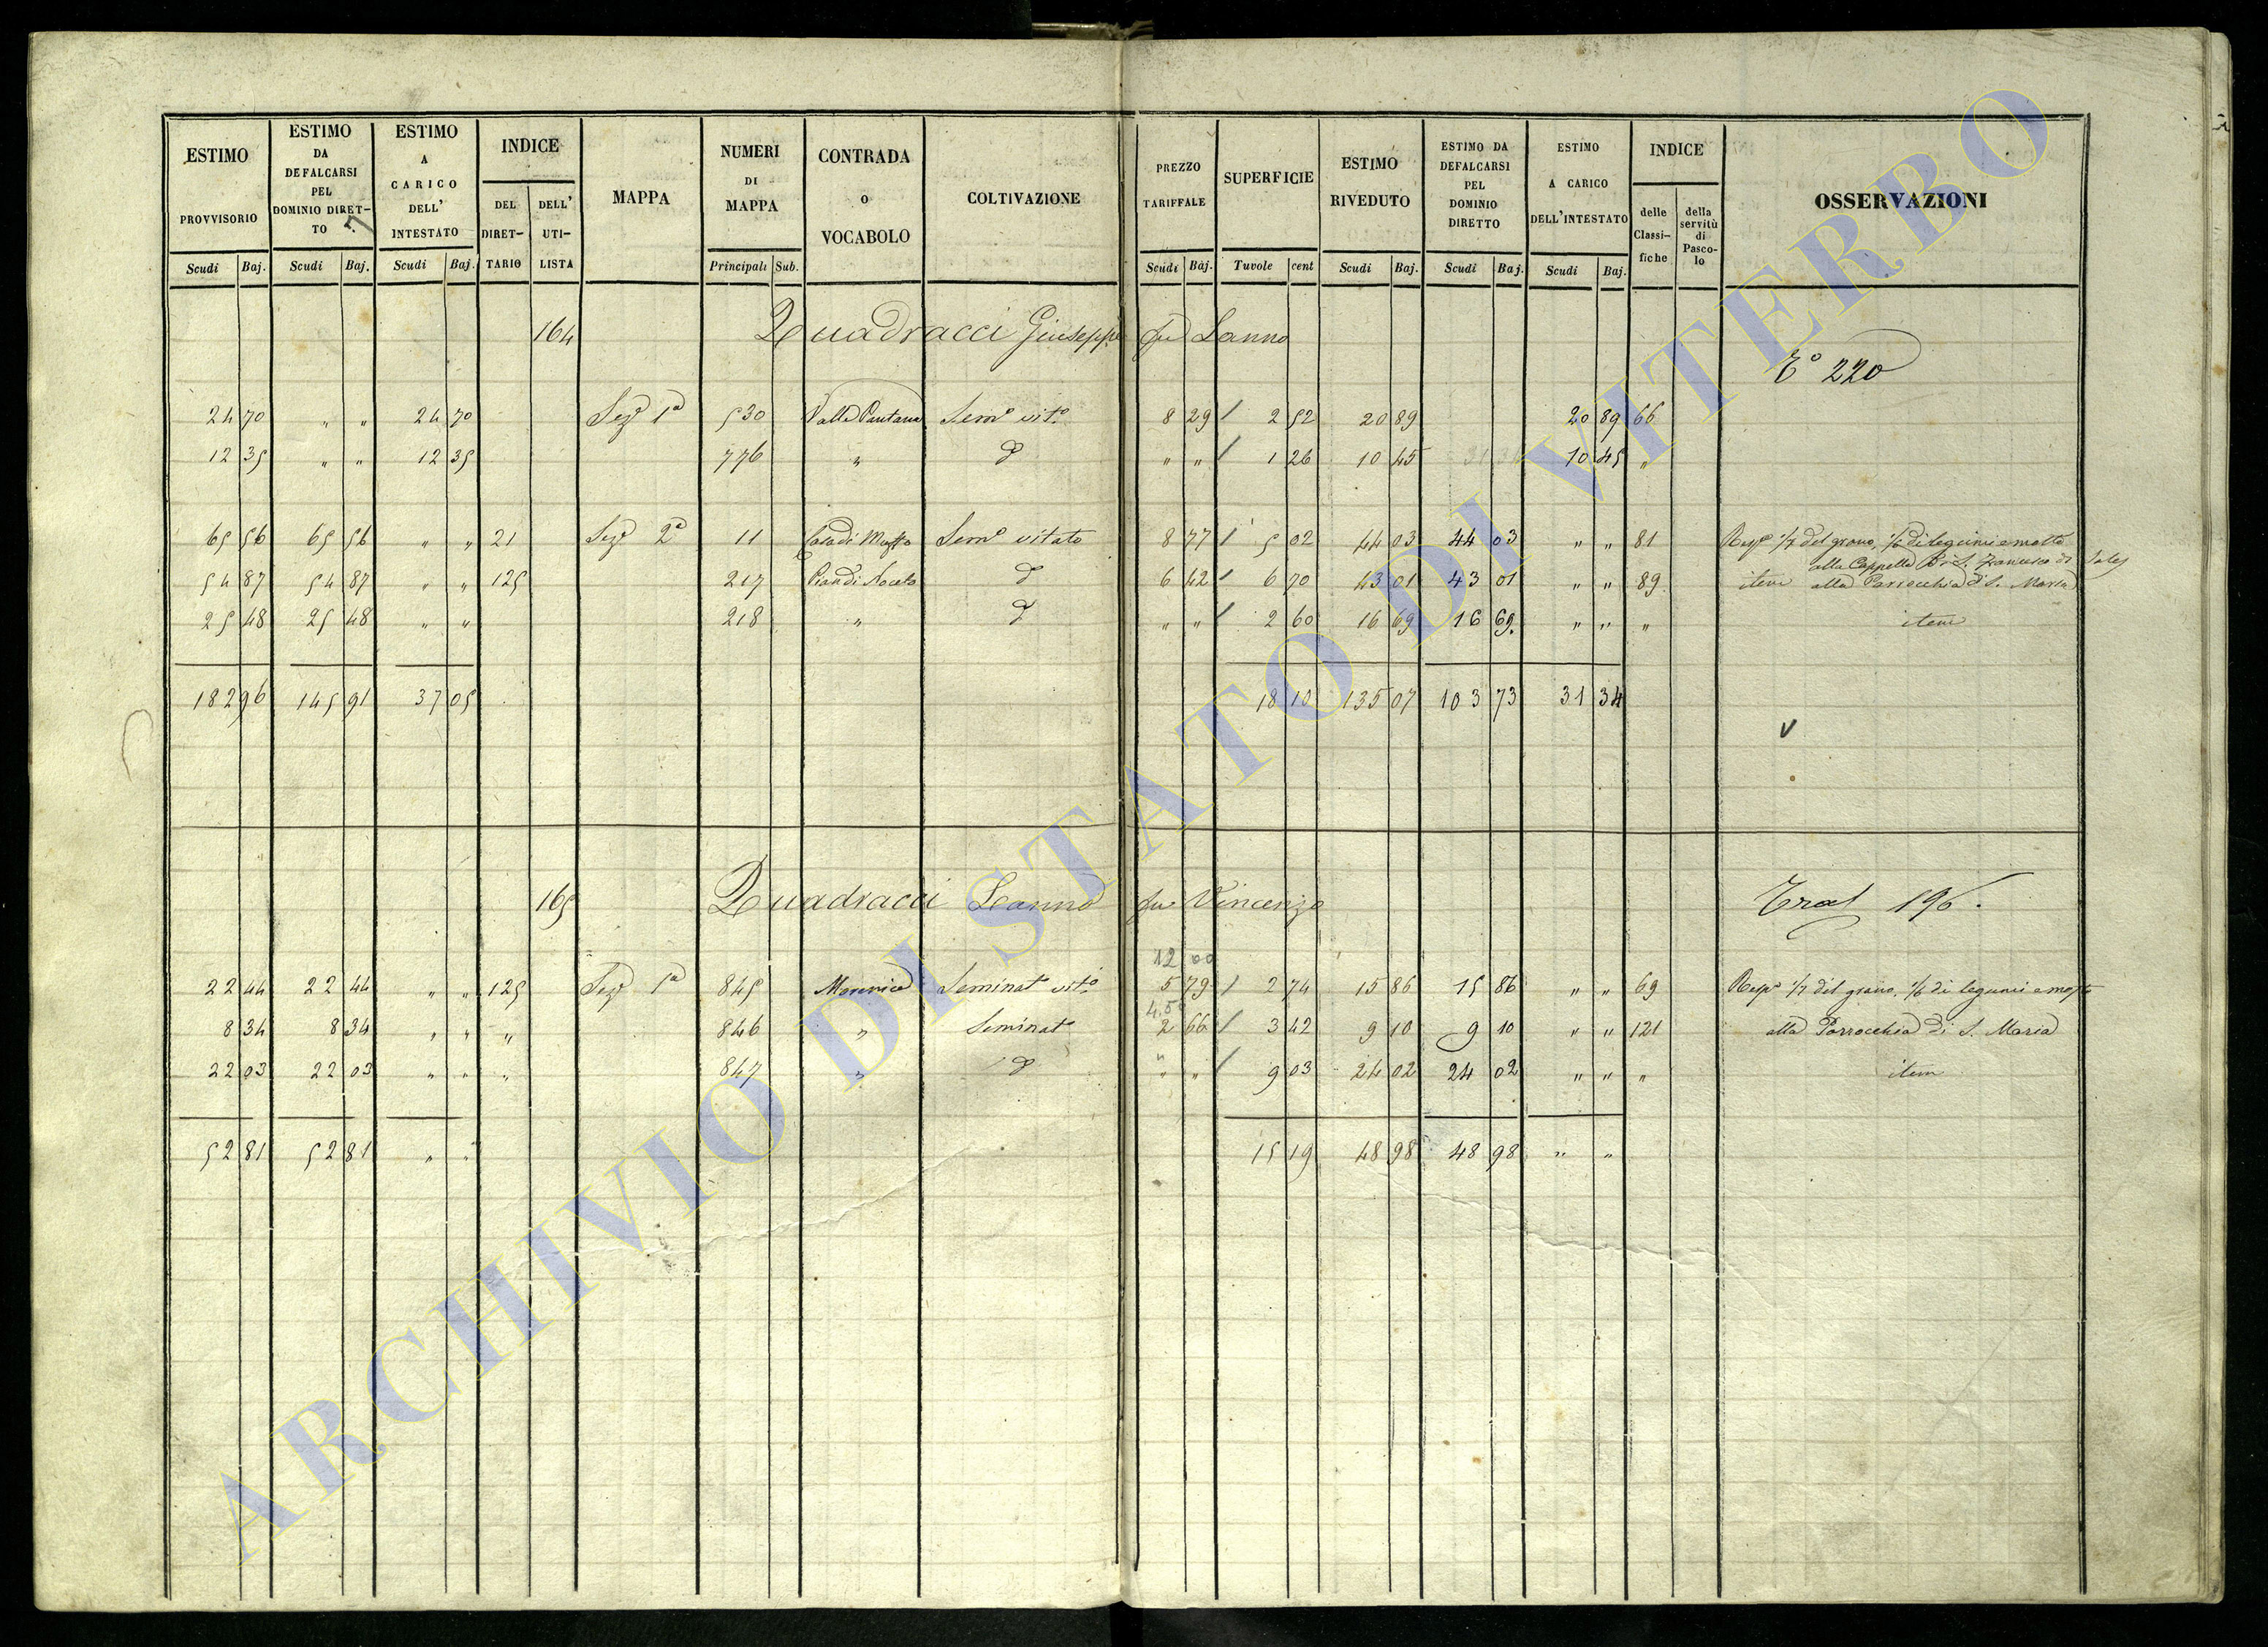 ESTIMO PROVVISORIO Scudi Baj.
ESTIMO DA DEFALCARSI PEL DOMINIO DIRETTO Scudi Baj.
ESTIMO A CARICO DELL' INTESTATO Scudi Baj.
INDICE DEL DIRETTARIO DELL' UTILISTA
MAPPA
NUMERI DI MAPPA Principali Sub.
CONTRADA O VOCABOLO
COLTIVAZIONE
PREZZO TARIFFALE Scudi Baj.
SUPERFICIE Tavole cent
ESTIMO RIVEDUTO Scudi Baj.
ESTIMO DA DEFALCARSI PEL DOMINIO DIRETTO Scudi Baj.
ESTIMO A CARICO DELL'INTESTATO Scudi Baj.
INDICE delle Classifiche della servitù di Pascolo
OSSERVAZIONI
164 Quadracci Giuseppe fu Lanno
T.° 220
24 70 " " 24 70 Sez.e 1a 530 Valle Pantana Sem.o vit.o 8 29 / 2 52 20 89 20 89 66
12 35 " " 12 35 776 " d 	" " / 1 26 10 45 31 34 10 45 "
65 56 65 56 " " 21 Sez.e 2a 11 Casa di Muffo Sem.o vitato 8 77 / 5 02 44 03 44 03 " " 81 Risp.e 1/7 del grano, 1/6 di legumi e mosto
alla Cappella di S. Francesco di Sales
54 87 54 87 " " 125 217 Pian di Noceto d 6 42 / 6 70 43 01 43 01 " " 89 item alla Parrocchia di S. Maria
25 48 25 48 " " 218 " d " " / 2 60 16 69 16 69 " " " item
182 96 145 91 37 05 18 10 135 07 103 73 31 34
V
165 Quadracci Lanno fu Vincenzo
196.
12 00
22 44 22 44 " " 125 Sez.e 1a 845 Seminat vit.o 5 79 / 2 74 15 86 15 86 " " 69 Risp.e 1/7 del grano, 1/6 di legumi e mosto
4.50
8 34 8 34 " " " 846 " Seminat.o 2 66 / 3 42 9 10 9 10 " " 121 alla Parrocchia di S. Maria
22 03 22 03 " " " 847 " d " " / 9 03 24 02 24 02 " " " item
52 81 52 81 " " 15 19 48 98 48 98 " "
ARCHIVIO DI STATO DI VITERBO